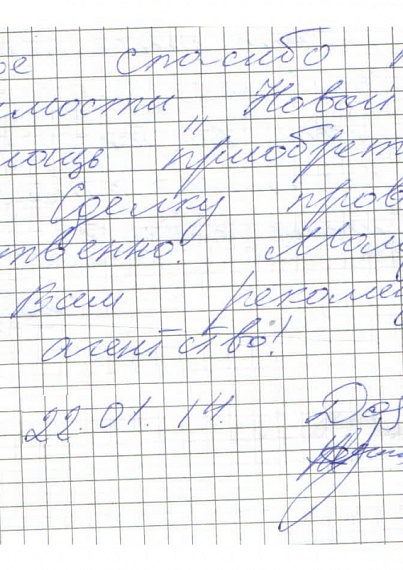 ое спасибо
мости „Новой
мощь приобрет
Сделку пров
ственно! Мол
Всем рекоме
агентство!
22.01.14.